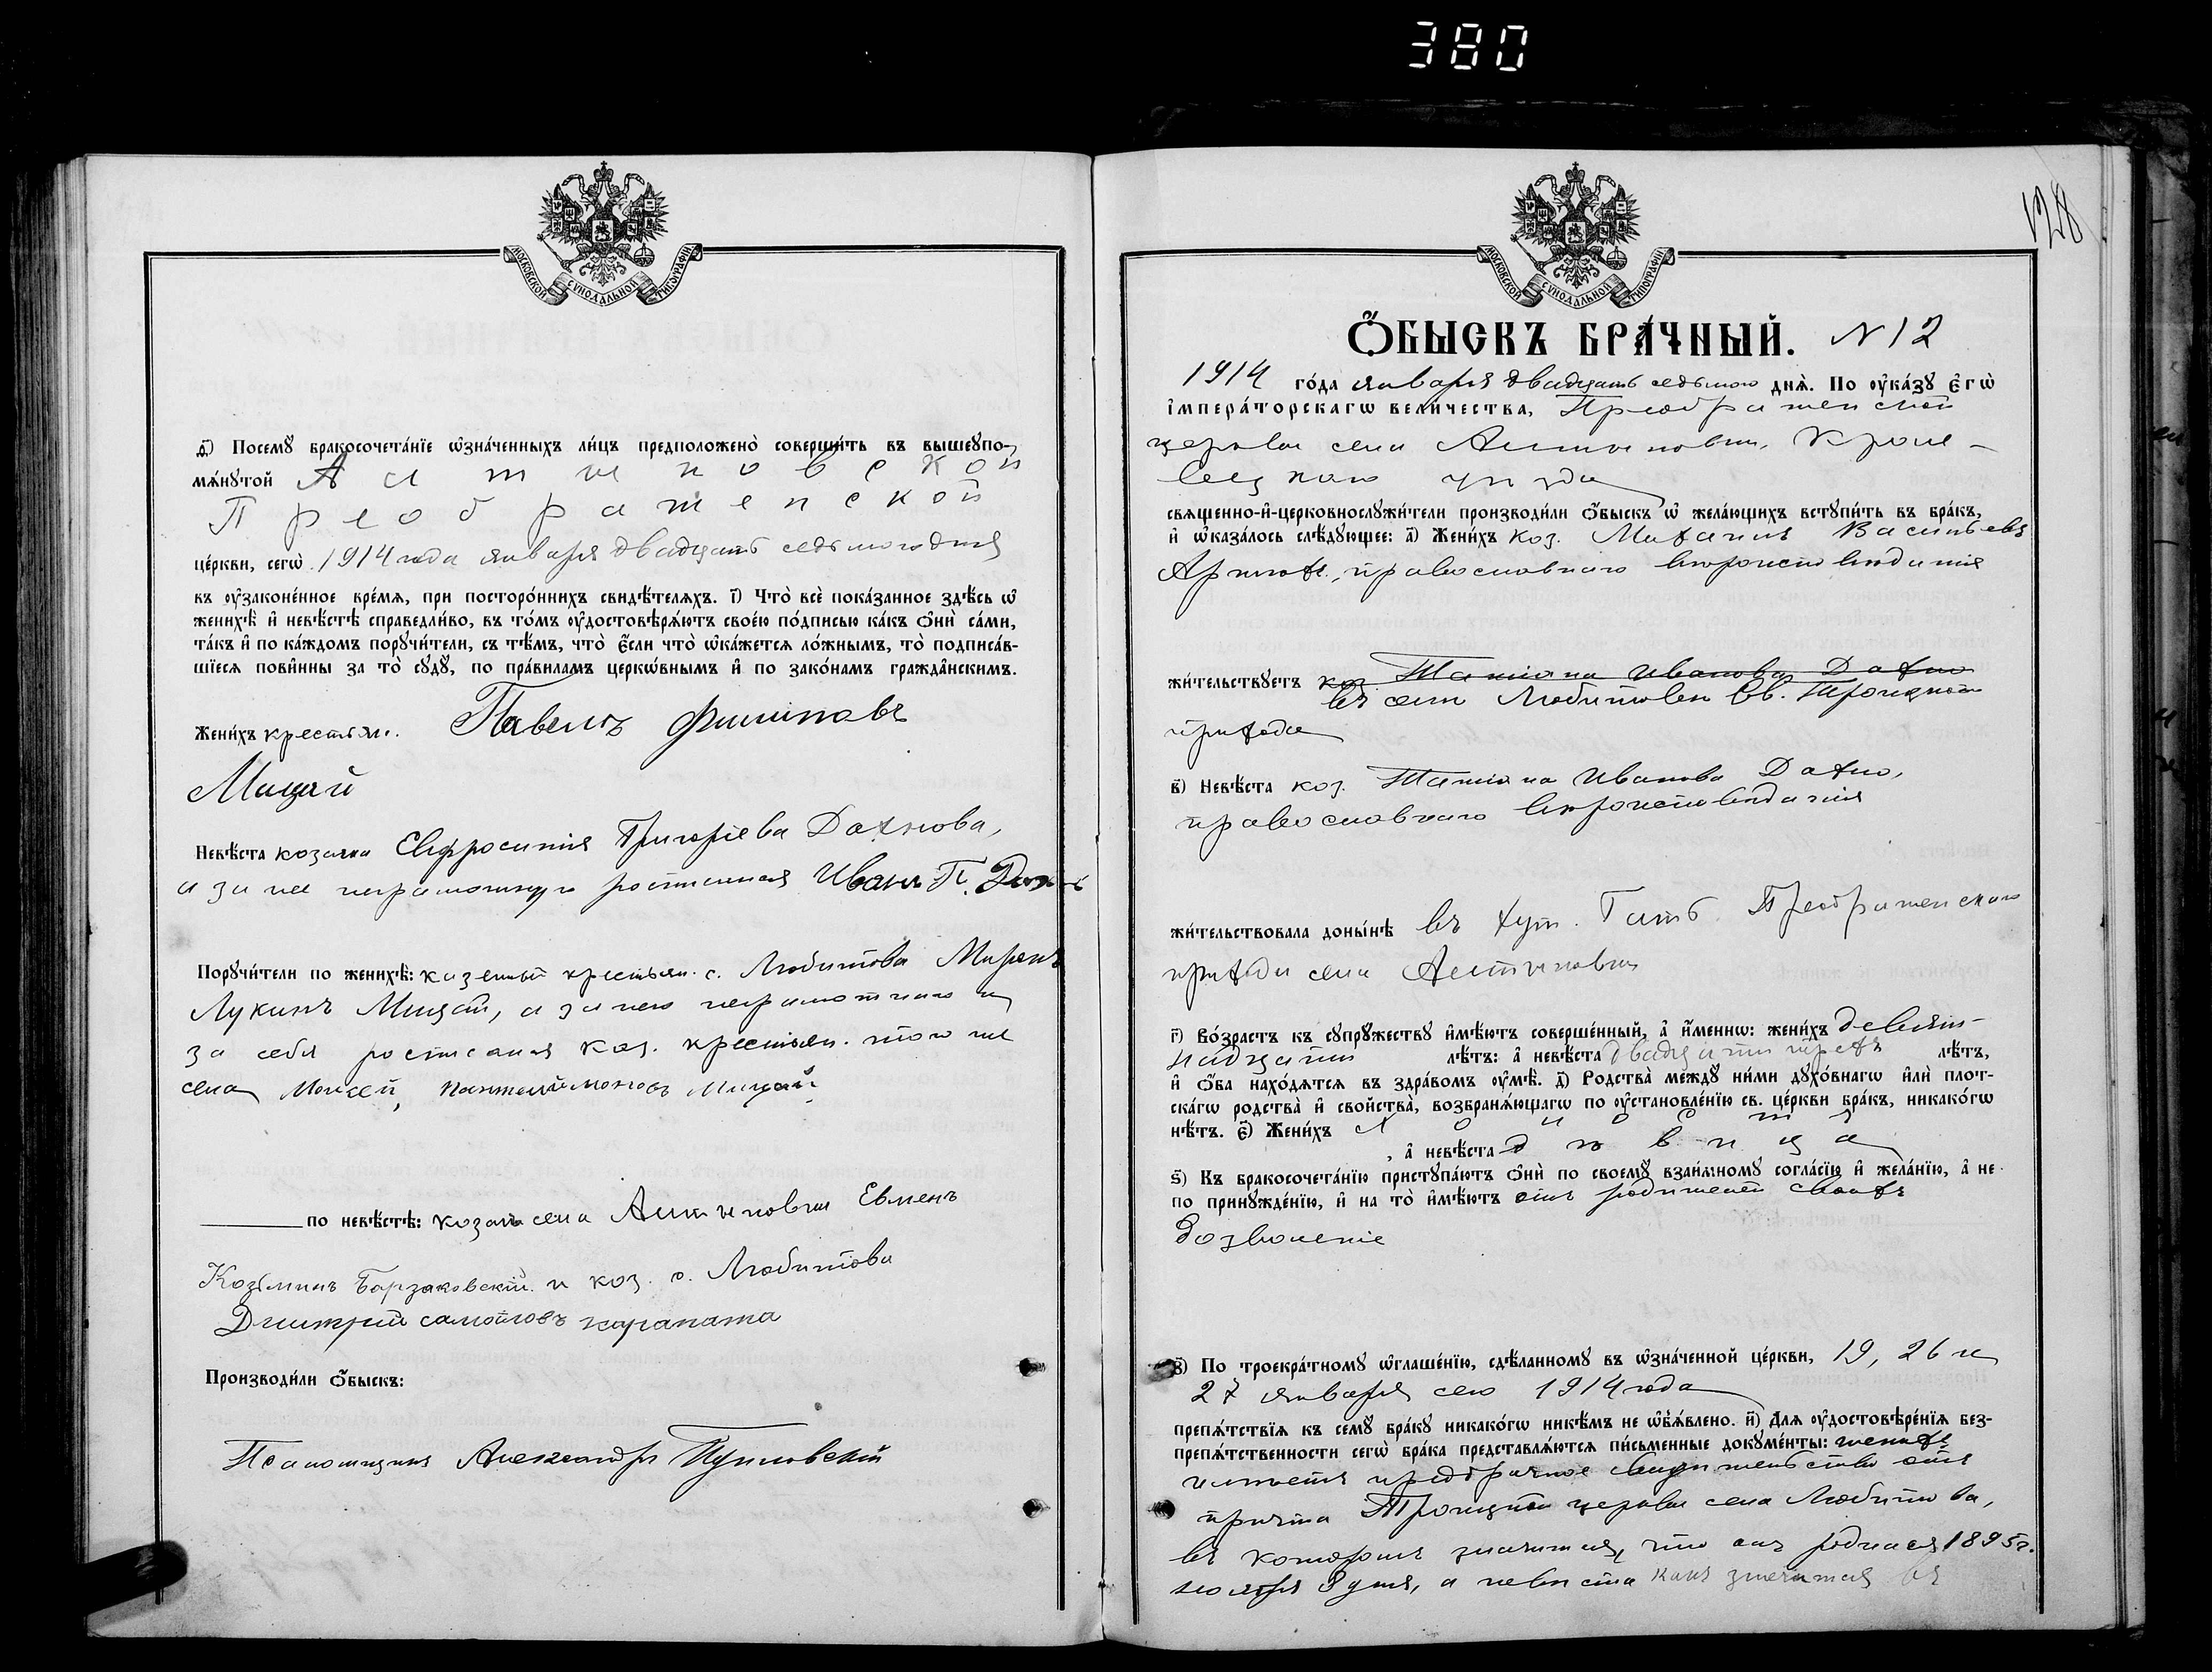 380
128
МОСКОВСКОЙ СУНОДАЛЬНОЙ ТИПОГРАФІИ
д҃) Посемꙋ бракосочета́нїе ѡ҆зна́ченныхъ ли́цъ предположено̀ соверши́ть въ вышеꙋпо-
мѧ́нꙋтой Алтыновской
Преображенской
це́ркви, сегѡ̀ 1914 года января двадцать седьмого дня
въ ᲂу҆законе́нное вре́мѧ, при посторо́ннихъ свидѣ́телѧхъ. і҃) Что̀ всѐ пока́занное здѣ́сь ѡ҆
женихѣ̀ и҆ невѣ́стѣ справедли́во, въ то́мъ ᲂу҆достовѣрѧ́ютъ свое́ю по́дписью ка́къ ѻ҆нѝ са́ми,
та́къ и҆ по ка́ждомъ порꙋчи́тели, съ тѣ́мъ, что̀ є҆́сли что̀ ѡ҆ка́жетсѧ ло́жнымъ, то̀ подписа́в-
шїесѧ пови́нны за то̀ сꙋдꙋ̀, по пра́виламъ церкѡ́внымъ и҆ по зако́намъ гражда́нскимъ.
Жени́хъ крестьян. Павелъ Филиповъ
Мицай
Невѣ́ста козачка Евфросинія Григоріева Дахнова,
а за нее неграмотную росписался Иванъ П.
Порꙋчи́тели по женихѣ̀: казенный крестьян. с. Любитова Миронъ
Лукинъ Мицай, а за него неграмотного и
за себя росписался каз. крестьян. того же
села Моисей Пантелиймоновъ Мицай
по невѣ́стѣ: козакъ села Алтыновки Евменъ
Козьминъ Барзаковскій и коз. с. Любитова
Дмитрій Самойловъ
Производи́ли ѻ҆́быскъ:
Псаломщикъ Александръ
МОСКОВСКОЙ СУНОДАЛЬНОЙ ТИПОГРАФІИ
Ѻ҆́БЫСКЪ БРА́ЧНЫЙ. N 12
1914 го́да января двадцать седьмого днѧ̀. По ᲂу҆ка́зꙋ Є҆гѡ̀
і҆мпера́торскагѡ вели́чества, Преображенской
церкви села Алтыновки, Кроле-
вецкаго уѣзда
свѧщенно-и҆-церковнослꙋжи́тели производи́ли ѻ҆́быскъ ѡ҆ жела́ющихъ встꙋпи́ть въ бра́къ,
и҆ ѡ҆каза́лось слѣ́дꙋющее: а҃) Жени́хъ коз. Михаилъ Васильевъ
православнаго вѣроисповѣданія
жи́тельствꙋетъ коз. Татіана Иванова Дахно
въ селѣ Любитовѣ Св. Троицкой
прихода
в҃) Невѣ́ста коз. Татіана Иванова Дахно,
православнаго вѣроисповѣданія
жи́тельствовала доны́нѣ въ хут. Гать Преображенскаго
прихода села Алтыновки
г҃) Во́зрастъ къ сꙋпрꙋ́жествꙋ и҆мѣ́ютъ соверше́нный, а҆ и҆́меннѡ: жени́хъ девят-
надцати лѣ́тъ: а҆ невѣ́ста двадцати трехъ лѣ́тъ,
и҆ ѻ҆́ба нахо́дѧтсѧ въ здра́вомъ ᲂу҆мѣ̀. д҃) Родства̀ междꙋ ни́ми дꙋхо́внагѡ и҆лѝ плот-
ска́гѡ родства̀ и҆ сво́йства, возбранѧ́ющагѡ по ᲂу҆становле́нїю св. це́ркви бра́къ, никако́гѡ
нѣ́тъ. є҃) Жени́хъ холостъ
, а҆ невѣ́ста дѣвица
ѕ҃) Къ бракосочета́нїю пристꙋпа́ютъ ѻ҆нѝ по своемꙋ̀ взаи́мномꙋ согла́сїю и҆ жела́нїю, а҆ не
по принꙋжде́нїю, и҆ на то̀ и҆мѣ́ютъ отъ родителей своихъ
дозволеніе
з҃) По троекра́тномꙋ ѡ҆глаше́нїю, сдѣ́ланномꙋ въ ѡ҆зна́ченной це́ркви, 19, 26 и
27 января сего 1914 года
препѧ́тствїѧ къ семꙋ̀ бра́кꙋ никако́гѡ никѣ́мъ не ѡ҆б̾ѧ́влено. и҃) Длѧ ᲂу҆достовѣре́нїѧ без-
препѧ́тственности сегѡ̀ бра́ка представлѧ́ютсѧ пи́сьменные докꙋме́нты: женихъ
имѣетъ предбрачное свидѣтельство отъ
причта Троицкой церкви села Любитова,
въ которомъ значится, что онъ родился 1895 г.
ноября 8 дня, а невѣста какъ значится въ